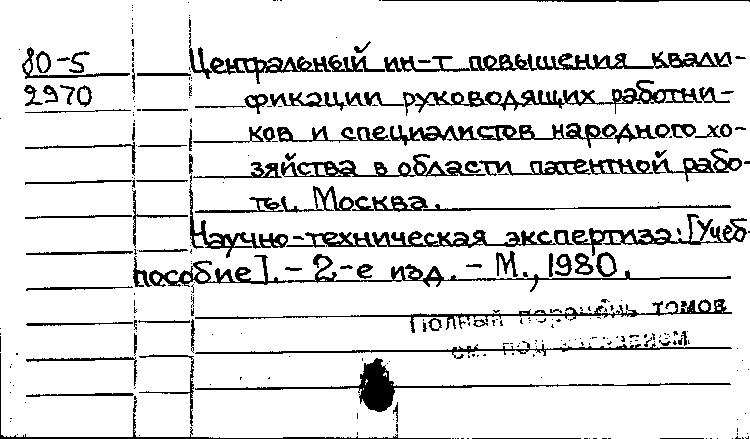 80-5 Центральный ин-т повышения квали-
2970 фикации руководящих работни-
ков и специалистов народного хо-
зяйства в области патентной рабо-
ты, Москва.
Научно-техническая экспертиза: [Учеб.
пособие]. - 2-е изд. - М., 1980.
Полный перечень томов
см. под заглавием